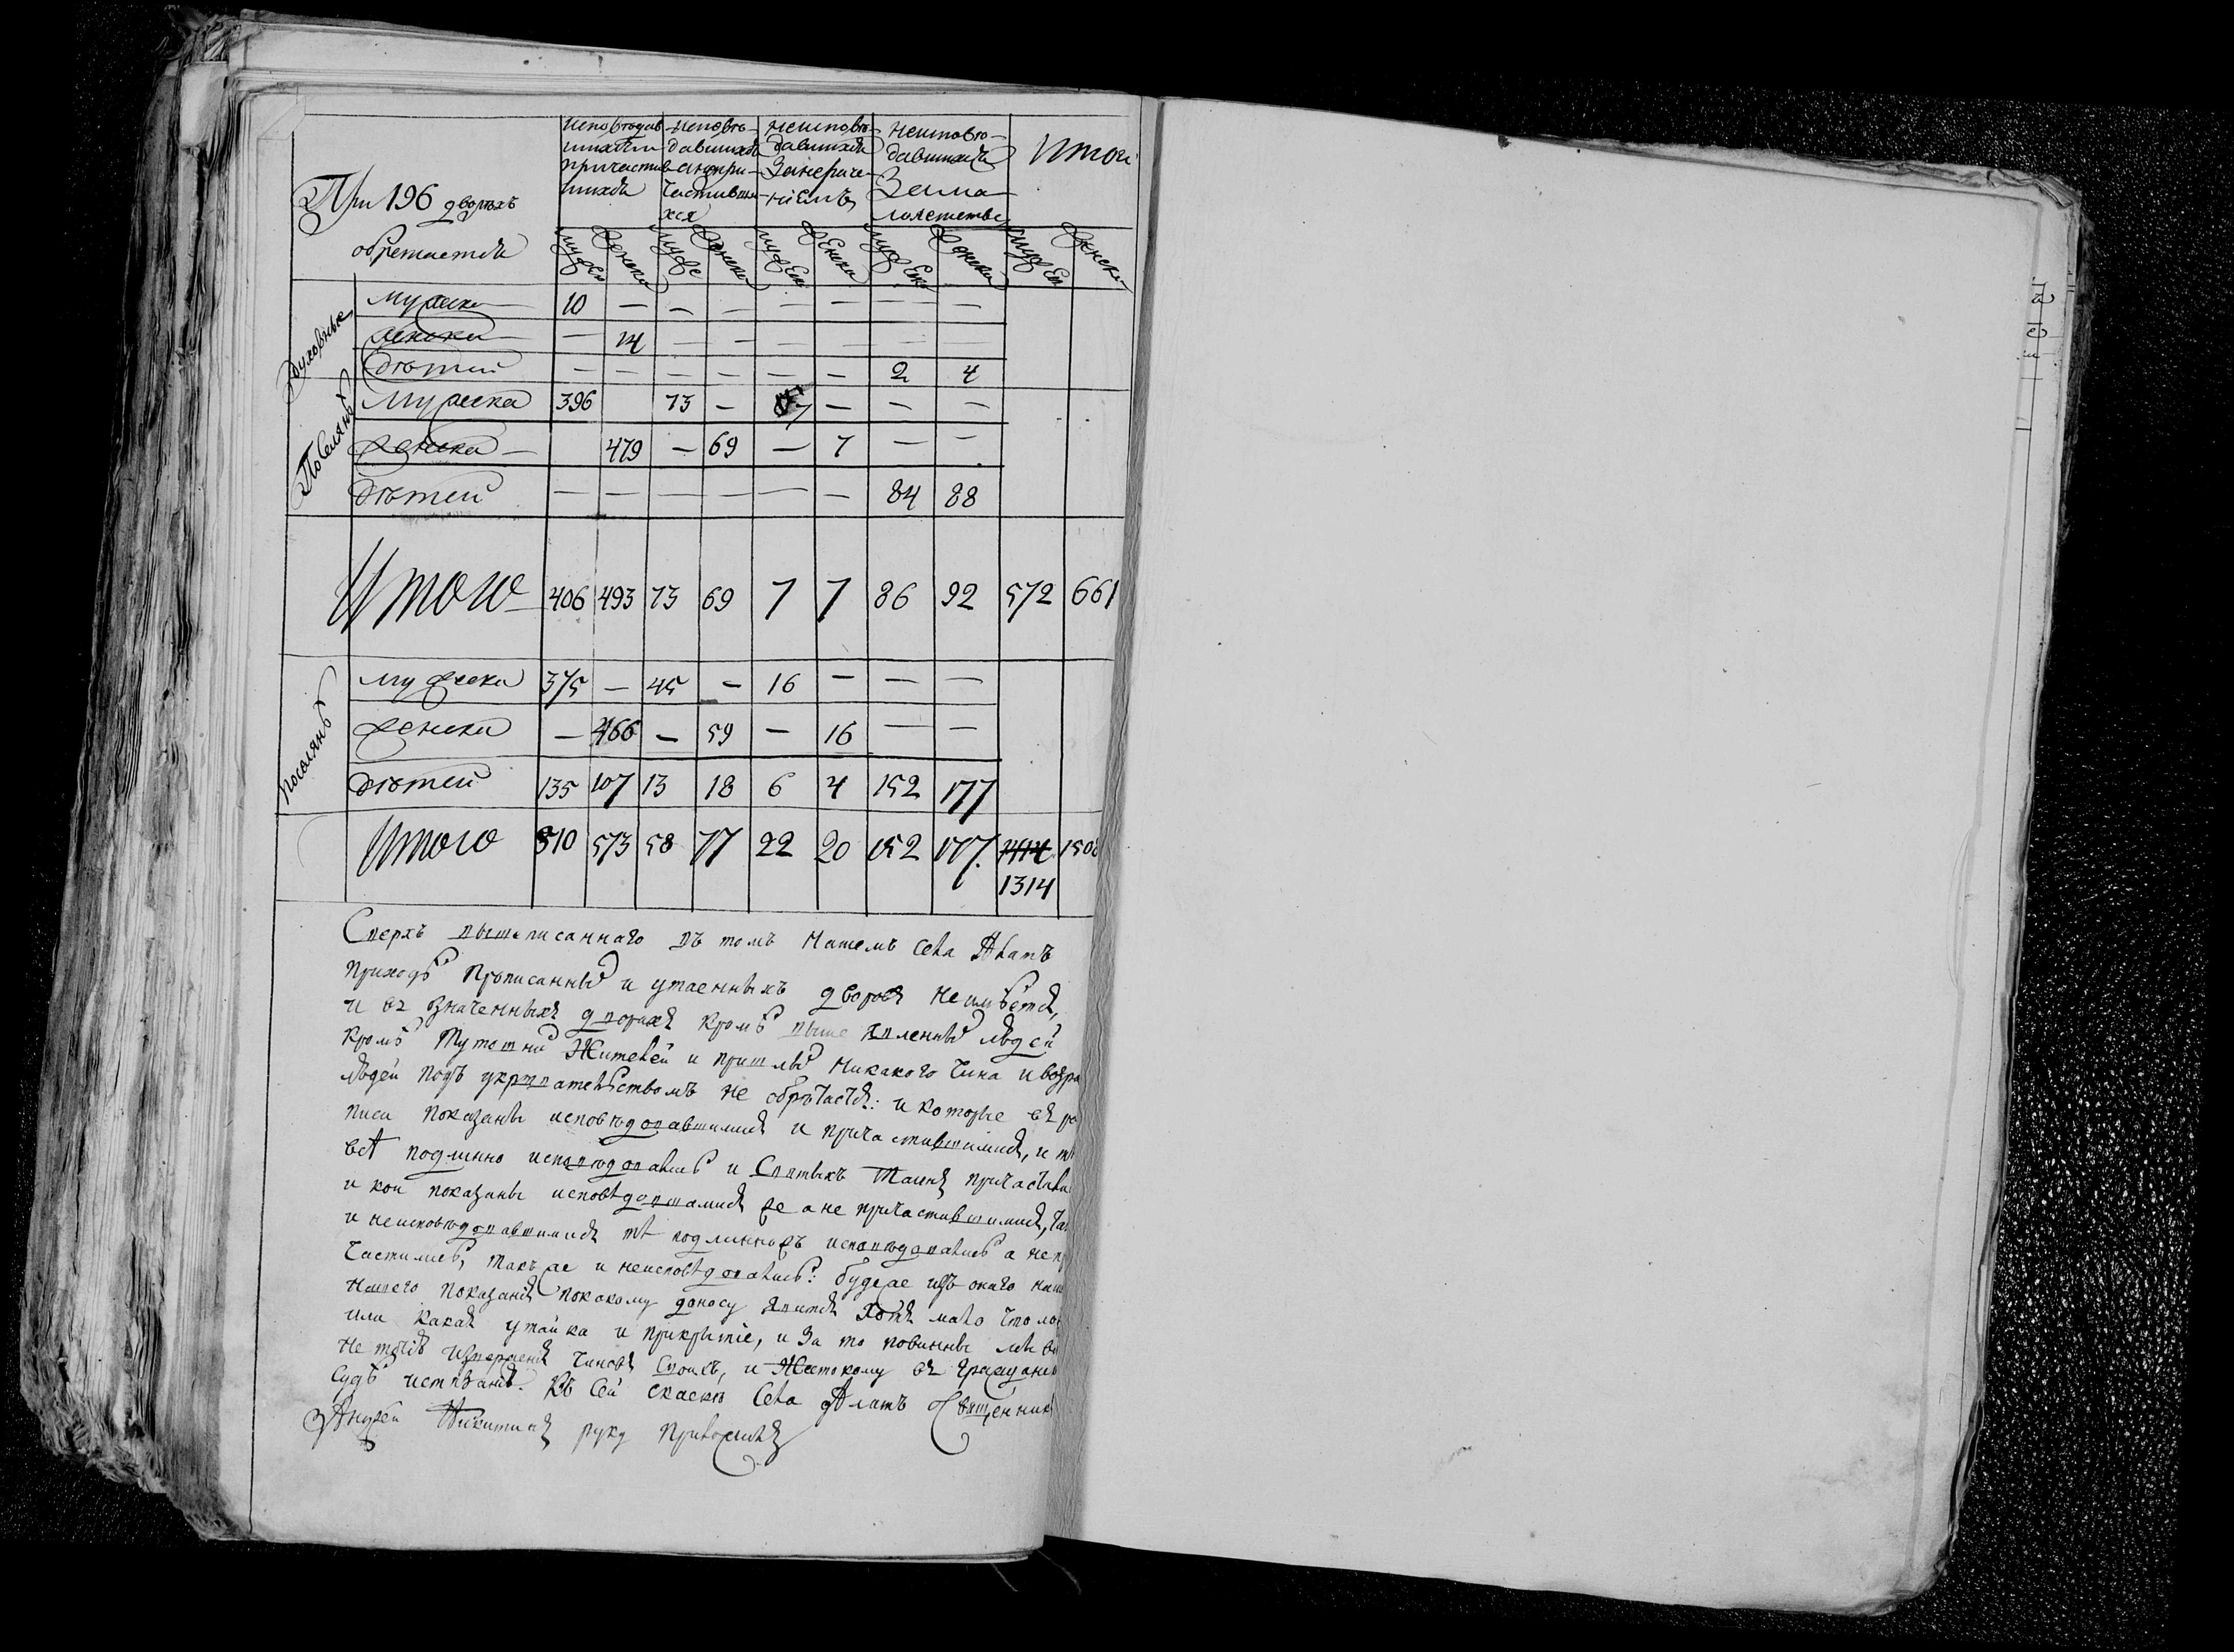 При 196 дворахъ обретается
исповедав шихся и причастив шихся
исповѣ давшихся а непри частивши хся
неисповѣ давшихся За нераче ниемъ
неисповѣ давшихся За мало летством
Итого
мужеск женска мужеск женска мужеск женска мужеск женска мужеск женска
Духовные
мужеска 10 — — — — — — —
женска — 14 — — — — — —
дѣтей — — — — — — 2 4
Поселянъ
мужеска 396 73 — 7 — — —
женска — 479 — 69 — 7 — —
дѣтей — — — — — — 84 88
Итого 406 493 73 69 7 7 86 92 572 661
Поселянъ
мужеска 375 — 45 — 16 — — —
женска — 466 — 59 — 16 — —
дѣтей 135 107 13 18 6 4 152 177
Итого 510 573 58 77 22 20 152 177 1314
Сверхъ вышеписаннаго въ томъ нашемъ села Алатъ
приходѣ прописанныхъ и утаенныхъ дворовъ неимѣется,
и въ значенныхъ дворахъ кромѣ выше людей
кромѣ жителей и пришлыхъ никакого чина и
людей подъ укрывателствомъ не обрѣтается: и которые въ
писи показаны исповѣдовавшимися и причастившимися, и
всѣ подлинно исповѣдовались и Святыхъ Таинъ
и кои показаны же а не причастившимися,
и неисповѣдовавшимися тѣ исповѣдовались а не
частились, такъ же и неисповѣдовались: будеже изъ онаго
нашего показания покакому доносу явится хотя мало что
или какая утайка и прикрытіе, и за то повинны мы
не извержения чиновъ своихъ, и жестокому въ
судѣ истязания. Къ сей скаскѣ села Алатъ Священникъ
Андрей Никитинъ руку приложилъ